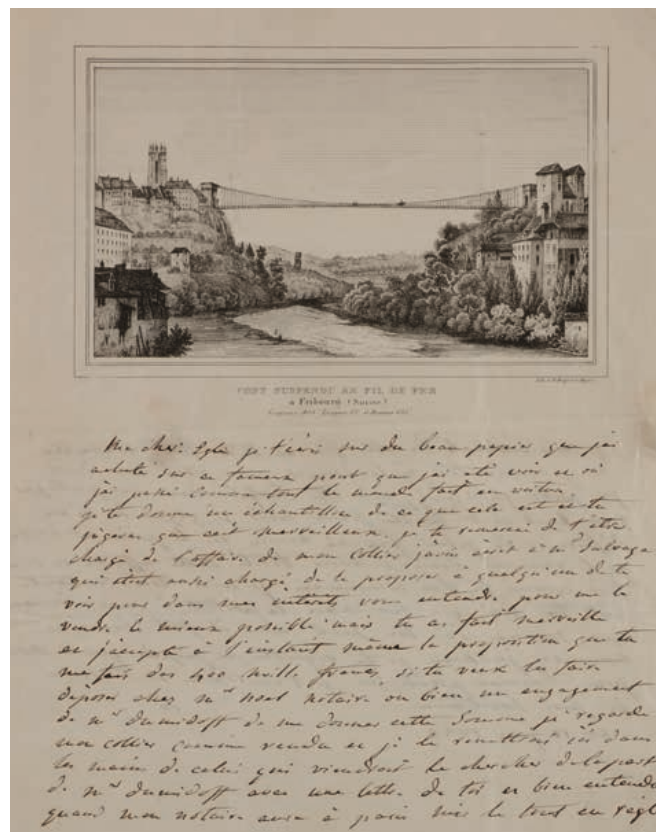 PONT SUSPENDU EN FIL DE FER
à Fribourg (Suisse)
Ma chère Egle je t'écris sur du beau papier que j'ai
acheté sur ce fameux pont que j'ai été voir et où
j'ai passé comme tout le monde fait en voiture
je te donne un échantillon de ce que cela est et tu
jugeras que c'est merveilleux. je te remercie de t'etre
chargé de l'affaire de mon collier j'avais écrit à mr Salvage
qui était aussi chargé de le proposer à quelqu'un de te
voir pour dans mes intérets vous entendre pour me le
vendre le mieux possible mais tu as fait merveille
et j'accepte à l'instant même la proposition que tu
me fais des 400 mille francs, si tu veux les faire
déposer chez mr Noel notaire ou bien un engagement
de mr dumidoff de me donner cette somme je regarde
mon collier comme vendu et je le remettrai ici dans
les main de celui qui viendrait le chercher de la part
de mr dumidoff avec une lettre de toi et bien entendu
quand mon notaire aura à paris mis le tout en règle